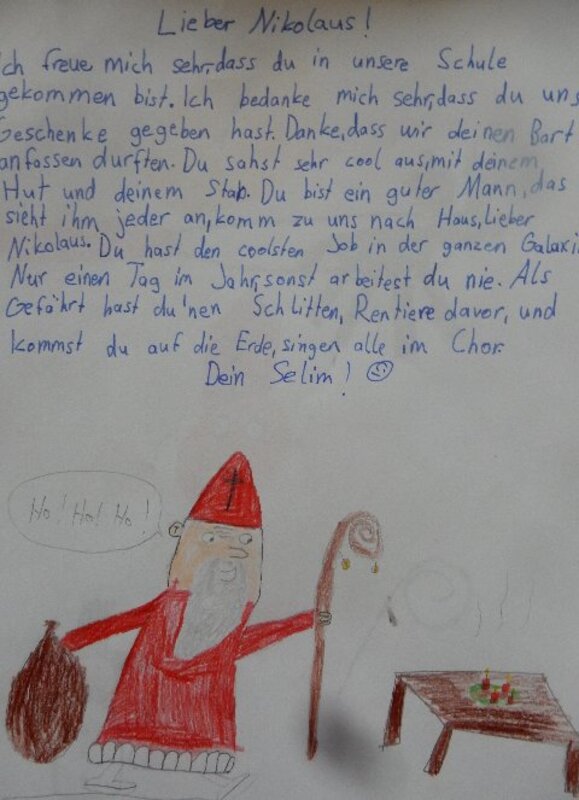 Lieber Nikolaus!
Ich freue mich sehr, dass du in unsere Schule
gekommen bist. Ich bedanke mich sehr, dass du uns
Geschenke gegeben hast. Danke, dass wir deinen Bart
anfassen durften. Du sahst sehr cool aus, mit deinem
Hut und deinem Stab. Du bist ein guter Mann, das
sieht ihm jeder an, komm zu uns nach Haus, lieber
Nikolaus. Du hast den coolsten Job in der ganzen Galaxi
Nur einen Tag im Jahr, sonst arbeitest du nie. Als
Gefährt hast du 'nen Schlitten, Rentiere davor, und
kommst du auf die Erde, singen alle im Chor.
Dein Selim! ☺
Ho! Ho! Ho!